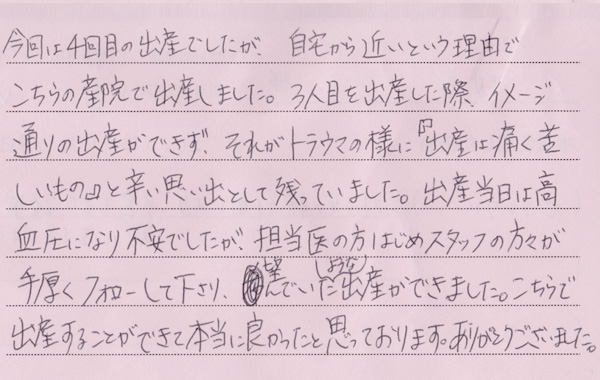 今回は4回目の出産でしたが、自宅から近いという理由で
こちらの産院で出産しました。3人目を出産した際、イメージ
通りの出産ができず、それがトラウマの様に『出産は痛く苦
しいもの』と辛い思い出として残っていました。出産当日は高
血圧になり不安でしたが、担当医の方はじめスタッフの方々が
手厚くフォローして下さり、望んでいたような出産ができました。こちらで
出産することができて本当に良かったと思っております。ありがとうございました。